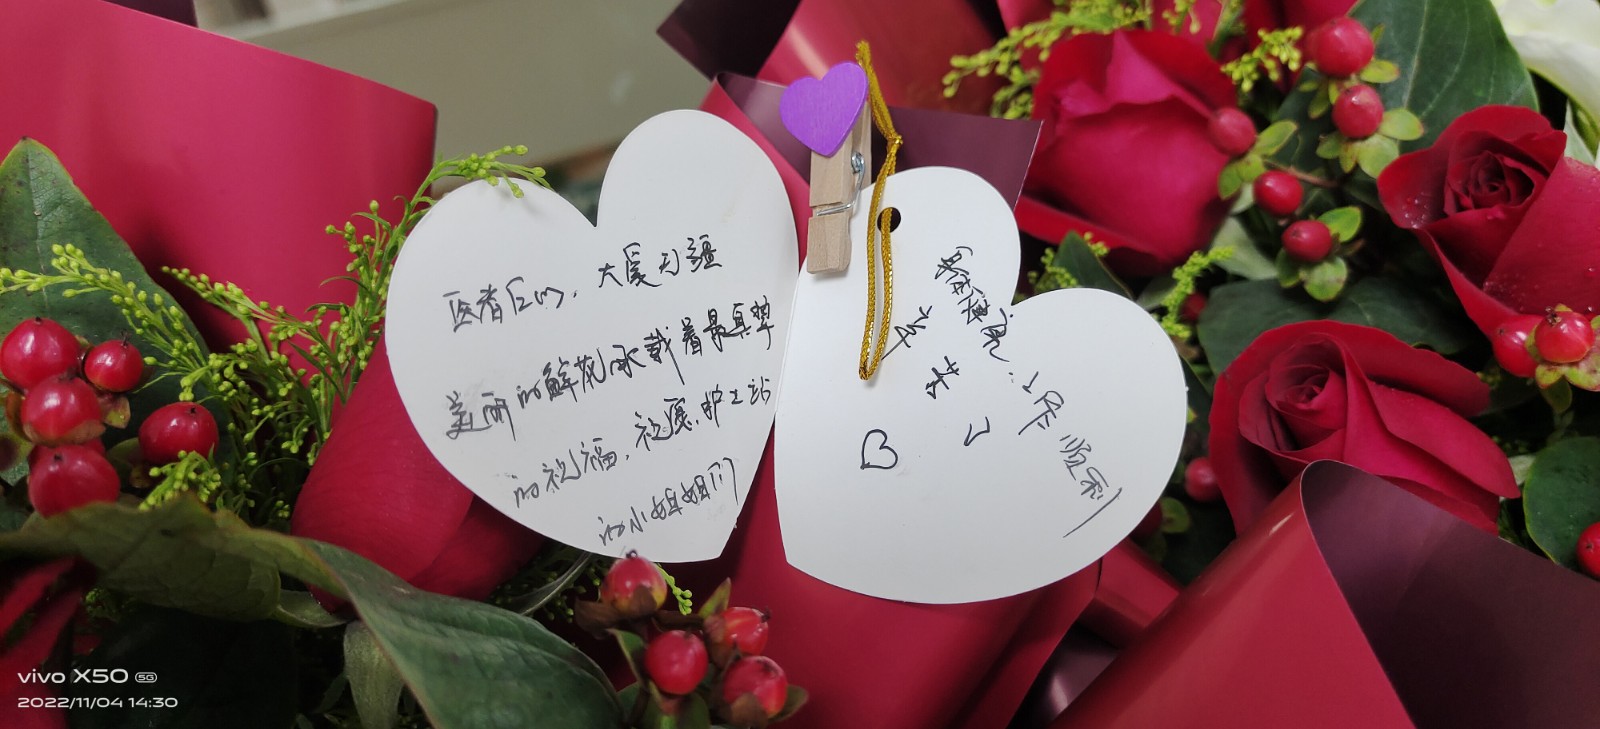 医者仁心，大爱无疆
美丽的鲜花承载着最真挚
的祝福，祝愿，护士站
的小姐姐们
身体健康：工作顺利
开心
vivo X50 5G
2022/11/04 14:30